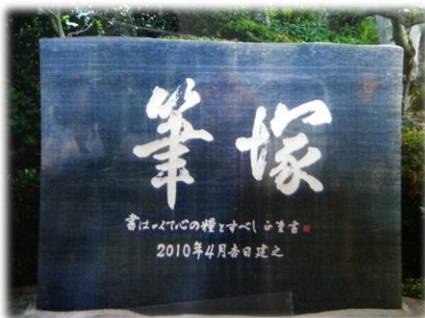 筆塚
書は以て心の糧とすべし
2010年4月吉日建之